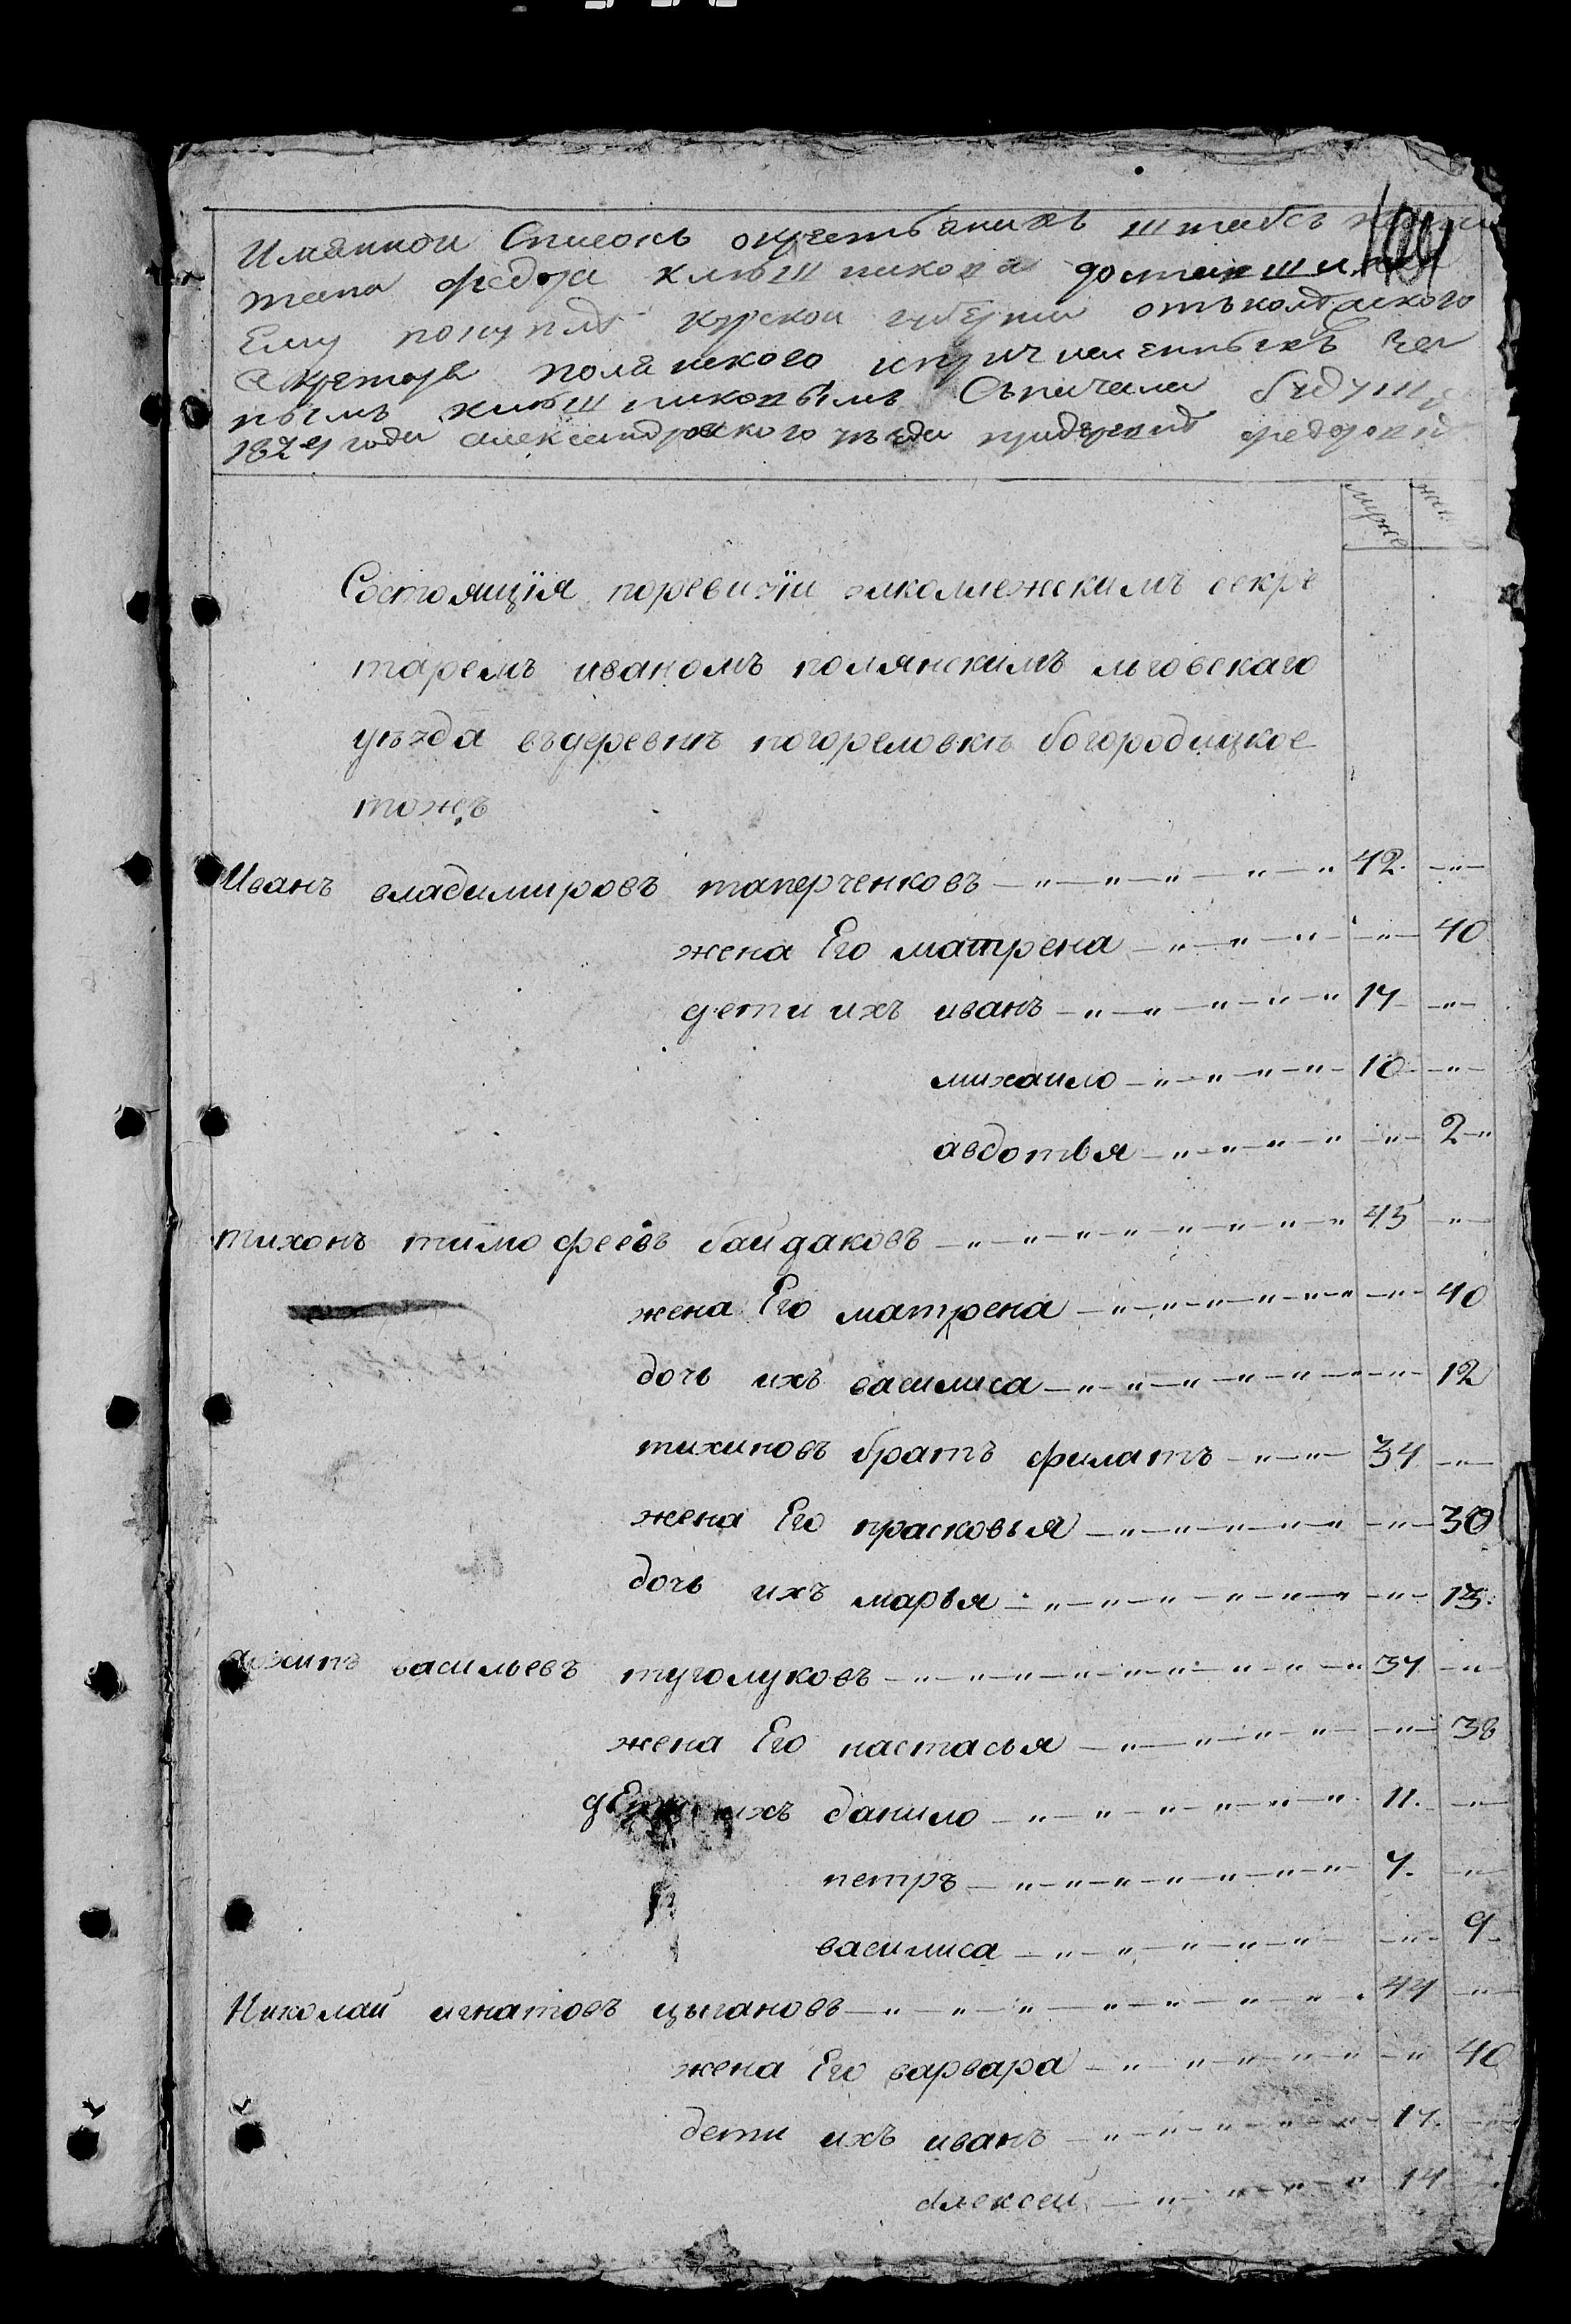 Имянной Списокъ окрестьянихъ штабсъ
тана федора клюшникова доставши
Ему покупле курской губерни отъ колежского
секретаря полянского ипричисленныхъ за
нымъ клюшниковымъ Сьначала будущ
1824 года александровского уъзда придеревне федоровке
муже жен
Состоящїя поревизїи заколлежскимъ секре
таремъ иваномъ полянскимъ льговскаго
уъзда въдеревнъ погореловкъ богородицкое
тожъ
Иванъ владимировъ таперченковъ 42
жена Его матрена 40
дети ихъ иванъ 17
михаило 10
авдотья 2
тихонъ тимофеевъ байдаковъ 45
жена Его матрена 40
дочь ихъ василиса 12
тихиновъ братъ филатъ 34
жена Его прасковья 30
дочь ихъ марья 13
васильевъ туголуковъ 37
жена Его настасья 38
дЕти ихъ данило 11
петръ 7
василиса 9
Николай игнатовъ цыгановъ 44
жена Его варвара 40
дети ихъ иванъ 17
алексей 14